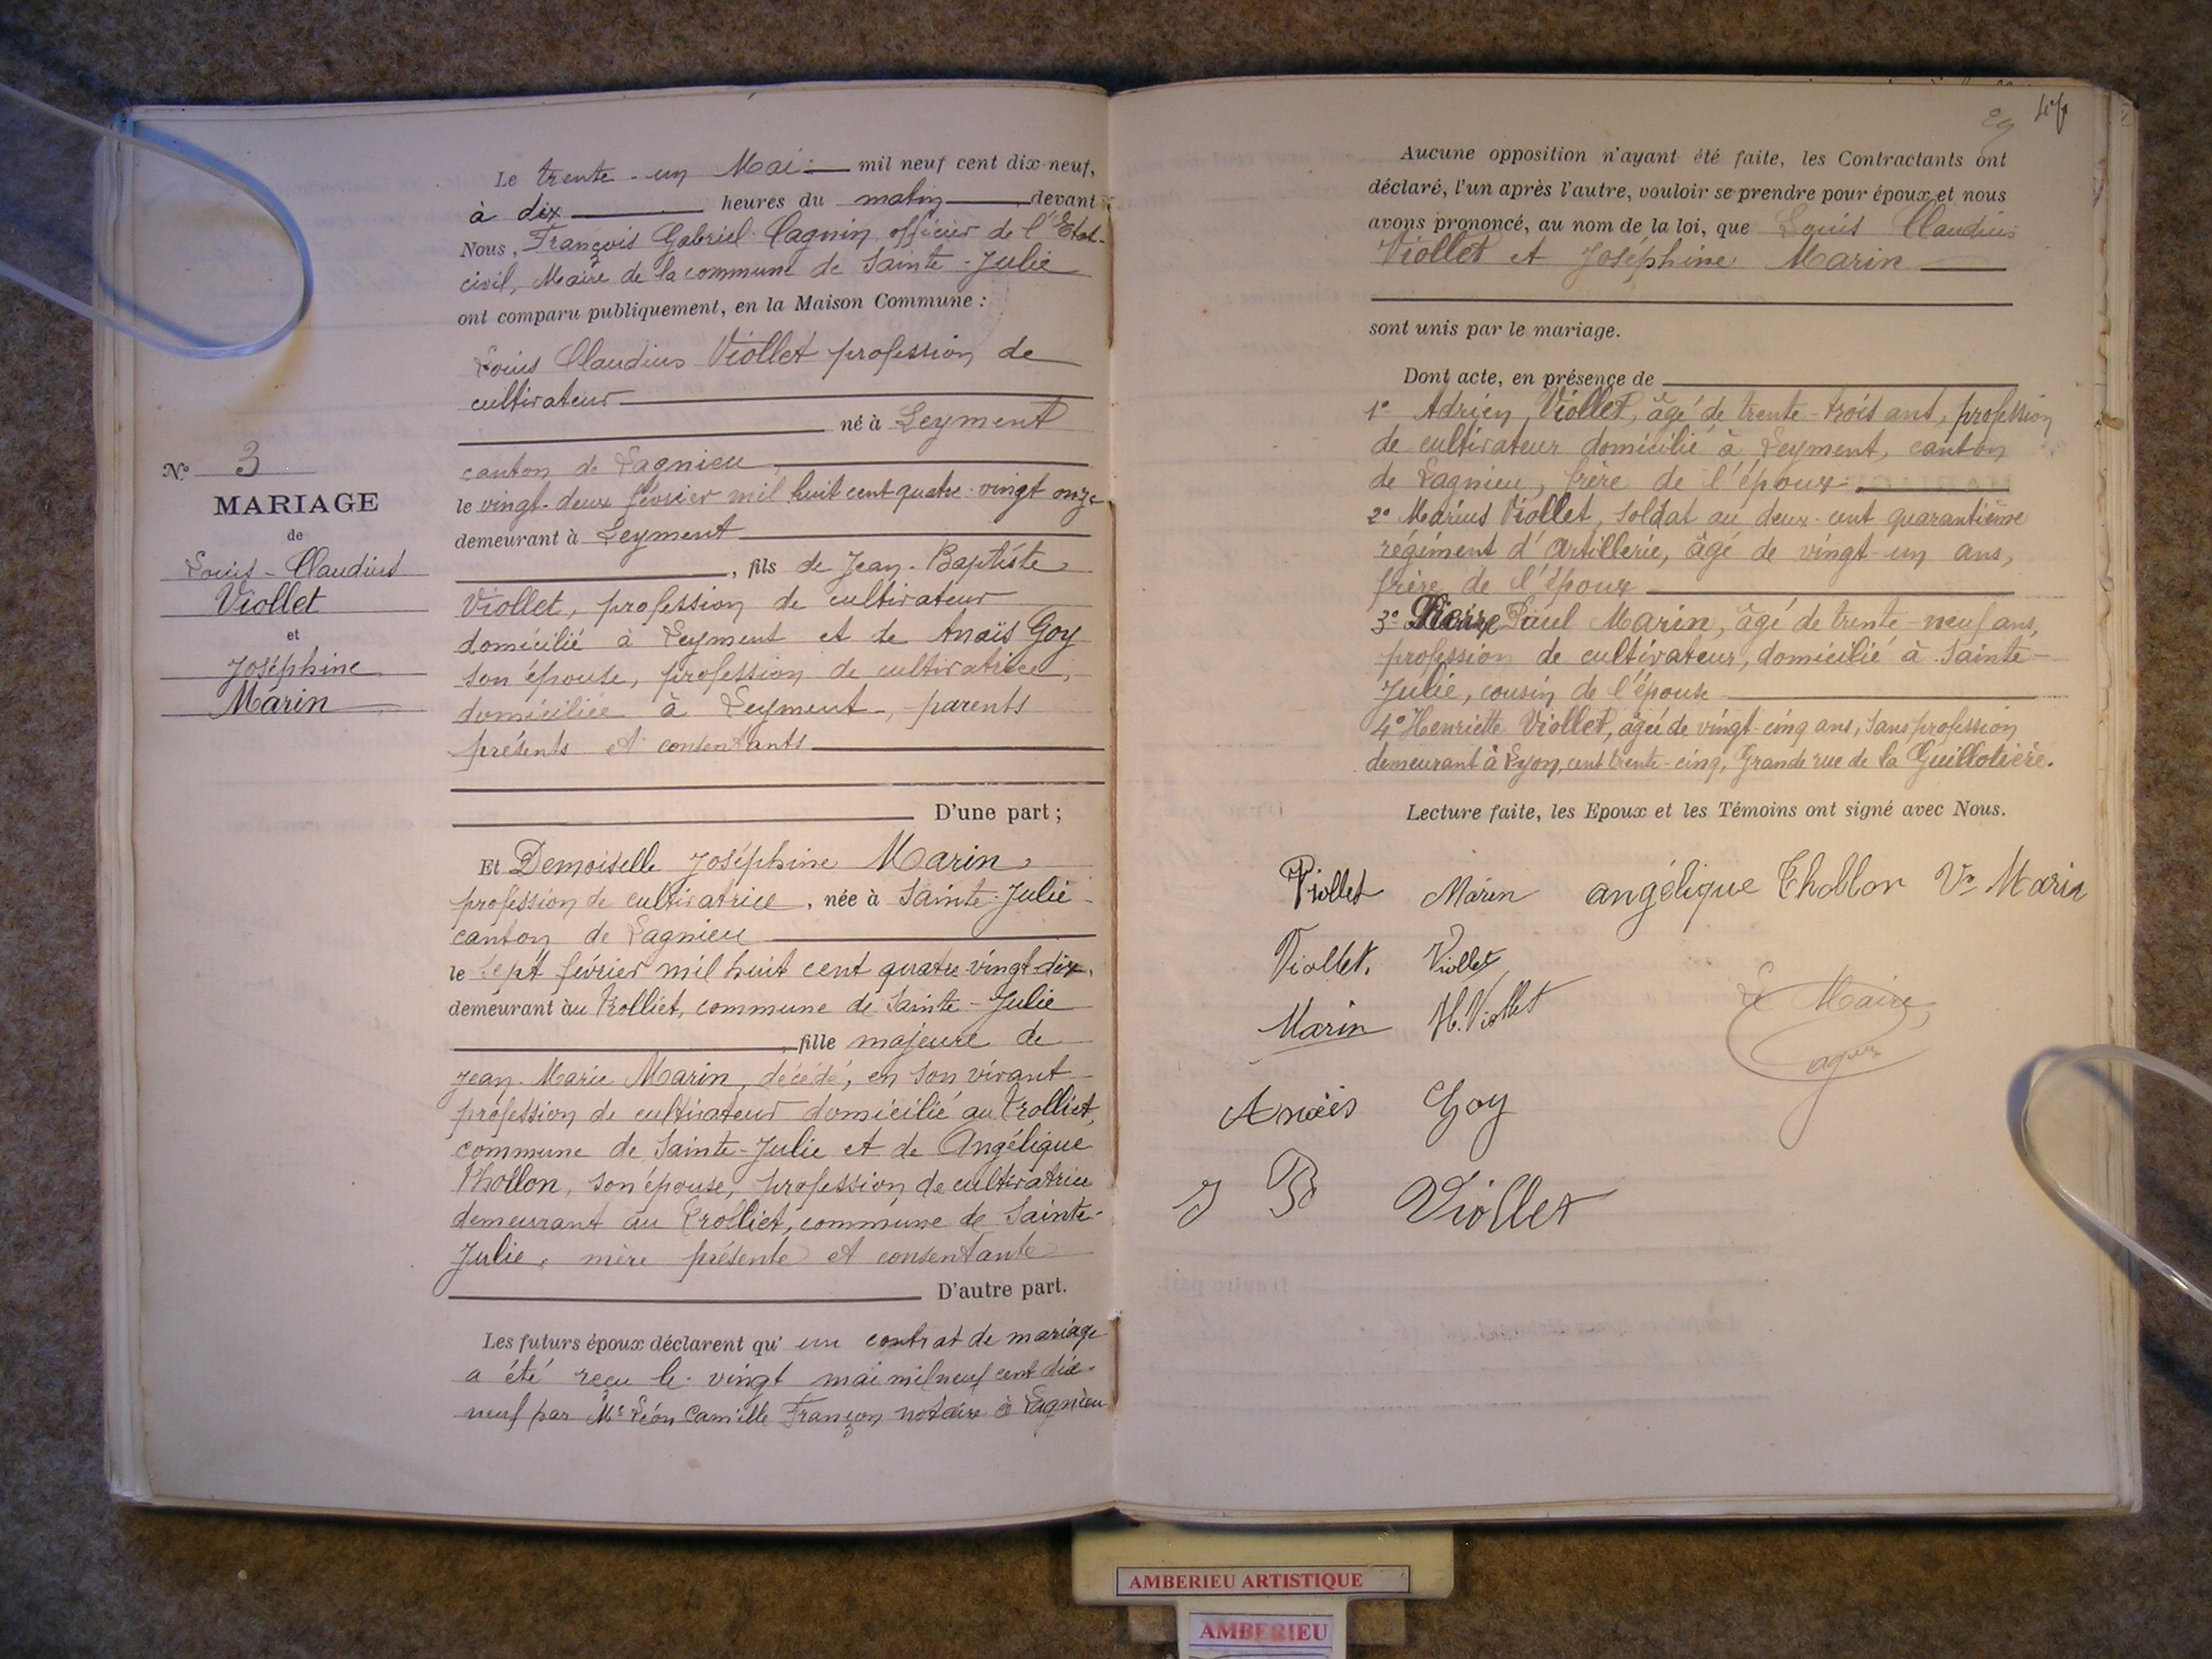 N° 3
MARIAGE
de
Louis-Claudius
Viollet
et
Joséphine
Marin
Le trente-un Mai mil neuf cent dix-neuf,
à dix heures du matin devant
Nous, François Gabriel Cagnin, officier de l'Etat-
civil, Maire de la commune de Sainte-Julie
ont comparu publiquement, en la Maison Commune :
Louis Claudius Viollet profession de
cultivateur
né à Leyment
canton de Lagnieu,
le vingt-deux février mil huit cent quatre-vingt onze
demeurant à Leyment
, fils de Jean-Baptiste
Viollet, profession de cultivateur
domicilié à Leyment et de Anaïs Goy
son épouse, profession de cultivatrice,
domiciliée à Leyment, parents
présents et consentants
D'une part ;
Et Demoiselle Joséphine Marin,
profession de cultivatrice, née à Sainte-Julie
canton de Lagnieu
le sept février mil huit cent quatre-vingt-dix,
demeurant au Trolliet, commune de Sainte-Julie
, fille majeure de
Jean-Marie Marin, décédé, en son vivant
profession de cultivateur domicilié au Trolliet,
commune de Sainte-Julie et de Angélique
Thollon, son épouse, profession de cultivatrice
demeurant au Trolliet, commune de Sainte-
Julie, mère présente et consentante
D'autre part.
Les futurs époux déclarent qu'un contrat de mariage
a été reçu le vingt mai mil neuf cent dix-
neuf par Me Léon Camille Françon notaire à Lagnieu
29
Aucune opposition n'ayant été faite, les Contractants ont
déclaré, l'un après l'autre, vouloir se prendre pour époux et nous
avons prononcé, au nom de la loi, que Louis Claudius
Viollet et Joséphine Marin
sont unis par le mariage.
Dont acte, en présence de
1° Adrien Viollet, âgé de trente-trois ans, profession
de cultivateur domicilié à Leyment, canton
de Lagnieu, frère de l'époux
2° Marius Viollet, soldat au deux-cent quarantième
régiment d'Artillerie, âgé de vingt-un ans,
frère de l'époux
3° Pierre Paul Marin, âgé de trente-neuf ans,
profession de cultivateur, domicilié à Sainte-
Julie, cousin de l'épouse
4° Henriette Viollet, âgée de vingt-cinq ans, sans profession
demeurant à Lyon, cent trente-cinq, Grande rue de la Guillotière.
Lecture faite, les Epoux et les Témoins ont signé avec Nous.
Viollet Marin angélique Thollon Ve Marin
Viollet. Viollet
Marin H. Viollet
Le Maire,
Anaïs Goy
J B Viollet
AMBERIEU ARTISTIQUE
AMBERIEU